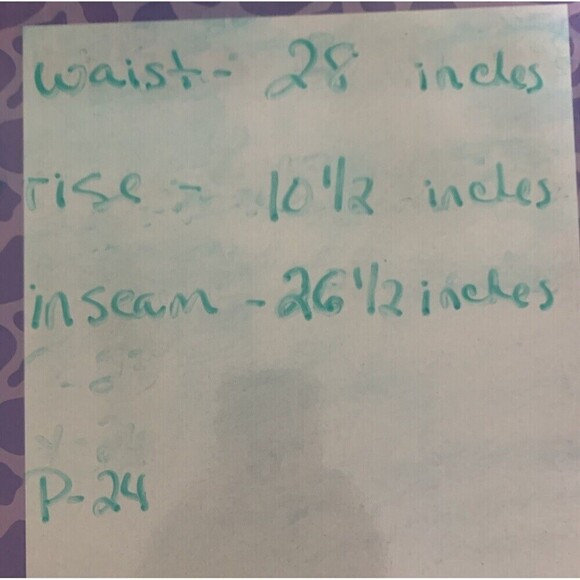 waist- 28 inches
rise - 10 1/2 inches
inseam - 26 1/2 inches
P-24